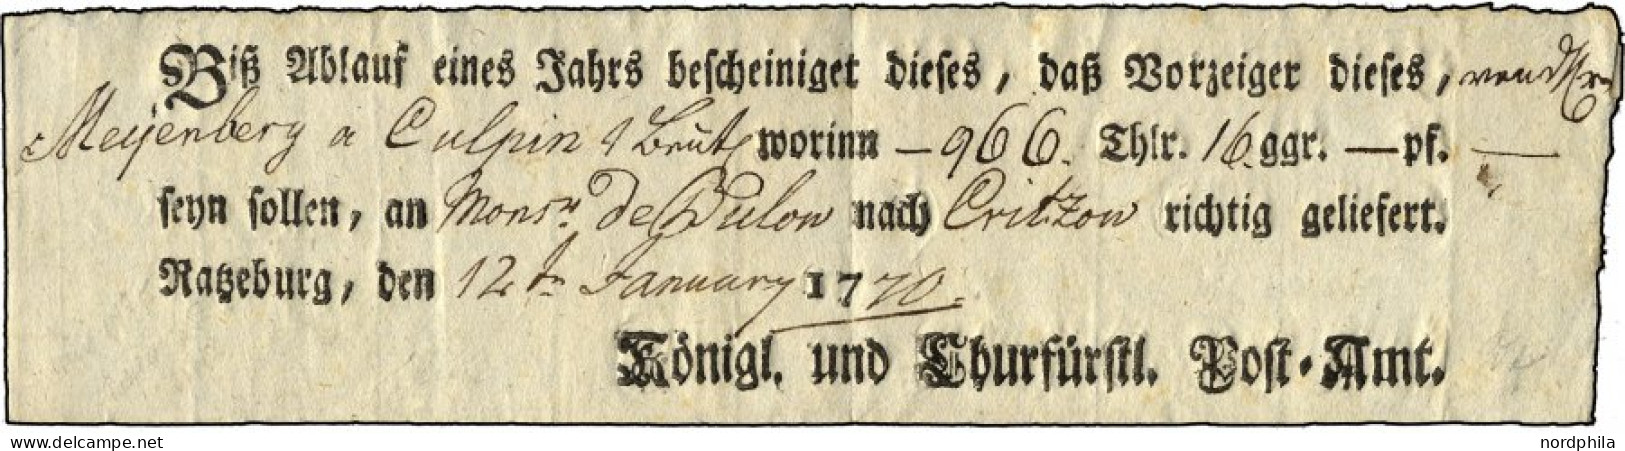 Biß Ablauf eines Jahrs bescheiniget dieses, daß Vorzeiger dieses, von
Meyenberg a Culpin 1 worinn — 966. Thlr. 16. ggr. — pf. —
seyn sollen, an Monsr. de Bulow nach Critzow richtig geliefert.
Ratzeburg, den 12tn January 1770.
Königl. und Churfürstl. Post-Amt.
delcampe.net
nordphila